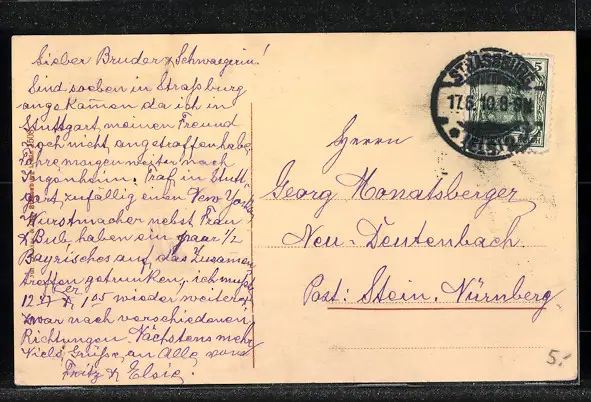 Lieber Bruder & Schwaegerin!
Sind soeben in Straßburg
angekommen da ich in
Stuttgart meinen Freund
noch nicht angetroffen habe,
Fahre morgen weiter nach
Ingenheim. Traf in Stutt
gart zufällig einen New Yorker
Wurstmacher nebst Frau
& Bub, haben ein paar 1/2
Bayrisches auf das Zusamen
treffen getrunken, ich mußte
12.27 & er 1.05 wieder weiter &
zwar nach verschiedenen
Richtungen. Nächstens mehr
Viele Grüße an Alle von
Fritz & Elsie.
STRASSBURG
17.6.10.8-9N
5
Herrn
Georg Monatsberger
Neu-Deutenbach.
Post: Stein. Nürnberg
5.-